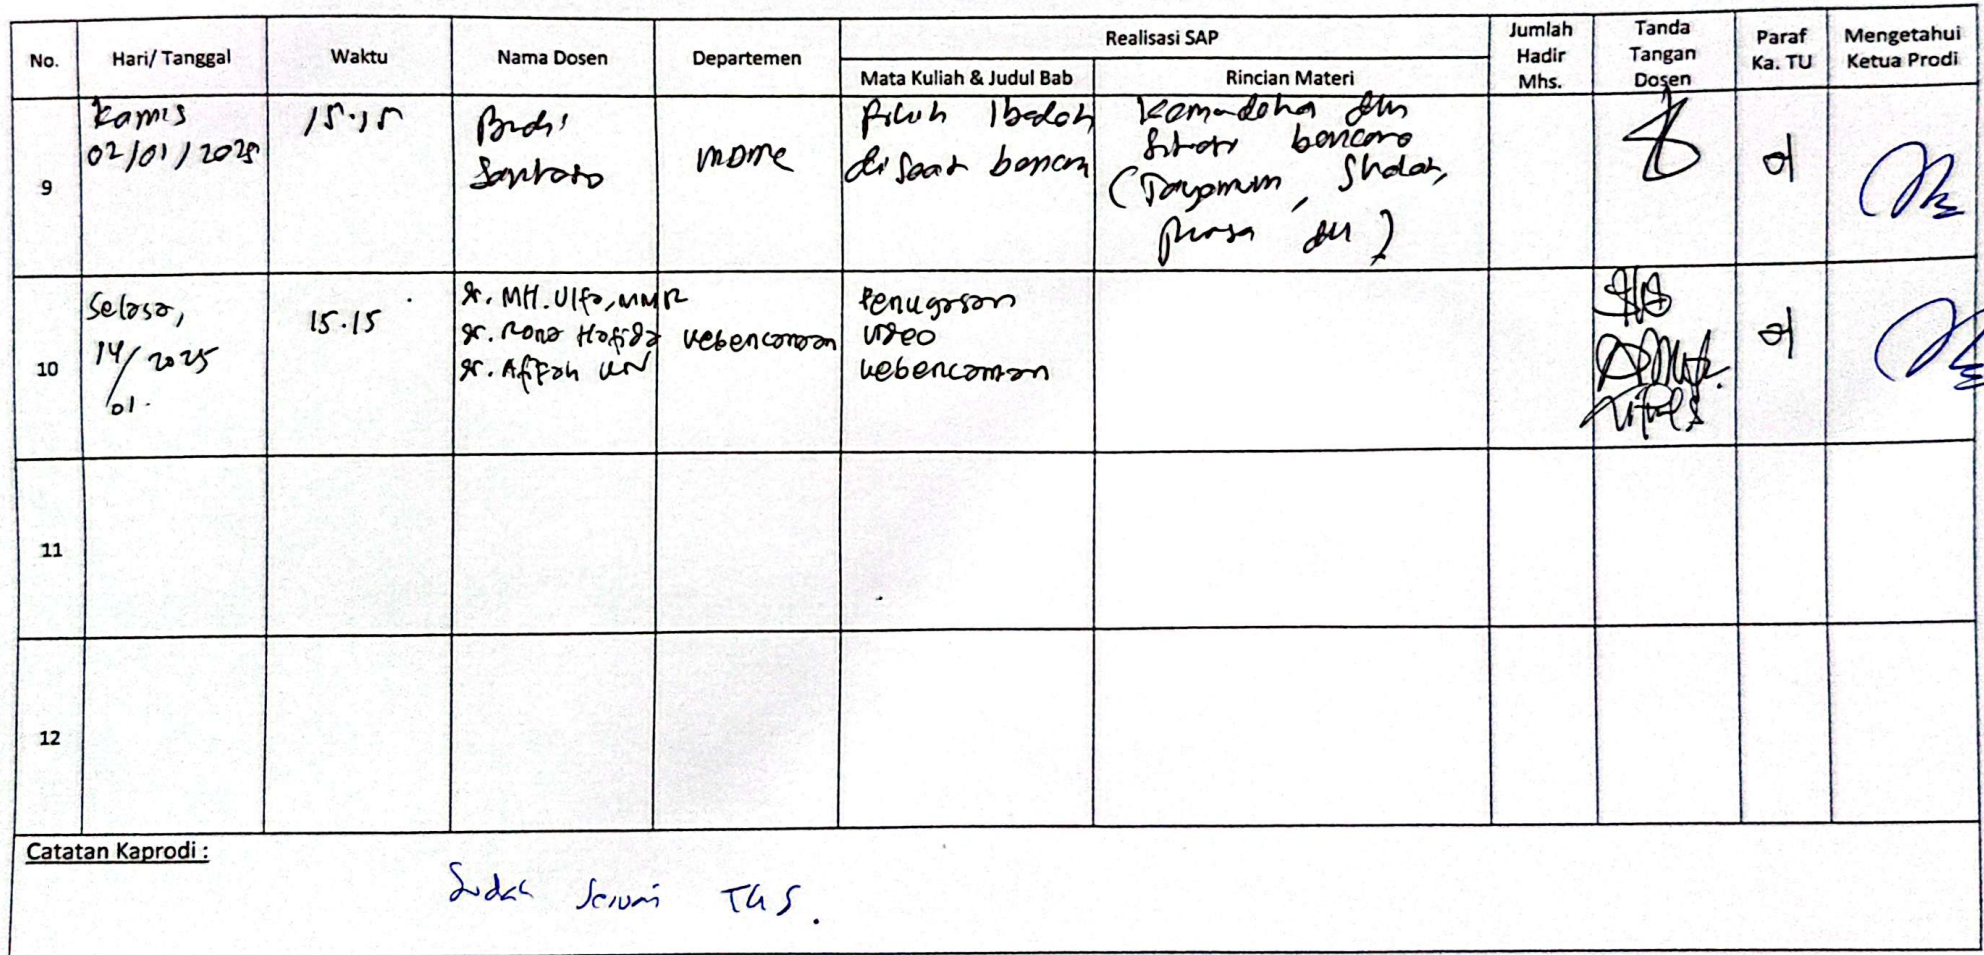 No.
Hari/ Tanggal
Waktu
Nama Dosen
Departemen
Realisasi SAP
Mata Kuliah & Judul Bab
Rincian Materi
Jumlah
Hadir
Mhs.
Tanda
Tangan
Dosen
Paraf
Ka. TU
Mengetahui
Ketua Prodi
9
Kamis
02/01/2025
15.15
Budi
Santoso
MDMC
Fikih Ibadah
di saat bencana
bencana
(Tayamum, Sholat,
puasa dll)
10
Selasa,
14/ 2025
/01.
15.15
dr. MH. Ulfa, MMR
dr. Rona Hafida
dr. Afifah
kebencanaan
Penugasan
video
kebencanaan
11
12
Catatan Kaprodi :
Sudah sesuai